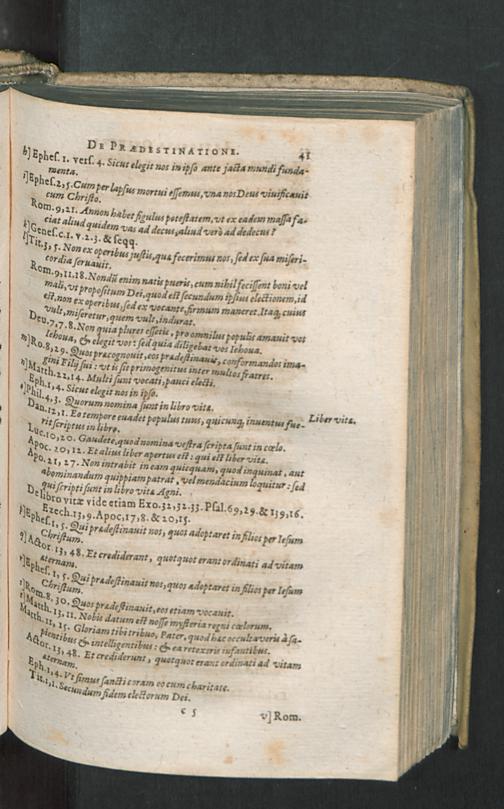 DE PRÆDESTINATIONE. 41
h] Ephes. 1. vers. 4. Sicut elegit nos in ipso ante jacta mundi funda-
menta.
i] Ephes. 2, 5. Cum per lapsus mortui essemus, vna nos Deus viuificauit
cum Christo.
Rom. 9, 21. Annon habet figulus potestatem, vt ex eadem massa fa-
ciat aliud quidem vas ad decus, aliud verò ad dedecus?
k] Genes. c. 1. v. 2. 3. & seqq.
l] Tit. 3, 5. Non ex operibus justis, quæ fecerimus nos, sed ex sua miseri-
cordia seruauit.
Rom. 9, 11. 18. Nondũ enim natis pueris, cum nihil fecissent boni vel
mali, vt propositum Dei, quod est secundum ipsius electionem, id
est, non ex operibus, sed ex vocante, firmum maneret. Itaq; cuius
vult, miseretur, quem vult, indurat.
Deu. 7, 7. 8. Non quia plures essetis, præ omnilus populis amauit vos
Iehoua, & elegit vos: sed quia diligebat vos Iehoua.
m] Ro. 8, 29. Quos præcognouit, eos prædestinauit, conformandos ima-
gini Filij sui: vt is sit primogenitus inter multos fratres.
n] Matth. 22. 14. Multi sunt vocati, pauci electi.
Eph. 1, 4. Sicut elegit nos in ipso.
o] Phil. 4, 3. Quorum nomina sunt in libro vitæ.
Dan. 12, 1. Eo tempore euadet populus tuus, quicunq; inuentus fue-
rit scriptus in libro.
Liber vitæ.
Luc. 10, 20. Gaudete, quod nomina vestra scripta sunt in cœlo.
Apoc. 20, 12. Et alius liber apertus est: qui est liber vitæ.
Apo. 21, 27. Non intrabit in eam quicquam, quod inquinat, aut
abominandum quippiam patrat, vel mendacium loquitur: sed
qui scripti sunt in libro vitæ Agni.
De libro vitæ vide etiam Exo. 32, 32. 33. Psal. 69, 29. & 139, 16.
Ezech. 13, 9. Apoc. 17, 8. & 20, 15.
p] Ephes. 1, 5. Qui prædestinauit nos, quos adoptaret in filios per Iesum
Christum.
q] Actor. 13, 48. Et crediderant, quotquot erant ordinati ad vitam
æternam.
r] Ephes. 1, 5. Qui prædestinauit nos, quos adoptaret in filios per Iesum
Christum.
s] Rom. 8, 30. Quos prædestinauit, eos etiam vocauit.
t] Matth. 13, 11. Nobis datum est nosse mysteria regni cœlorum.
Matth. 11, 25. Gloriam tibi tribuo, Pater, quod hæc occultaueris à sa-
pientibus & intelligentibus: & ea retexeris infantibus.
Actor. 13, 48. Et crediderunt, quotquot erant ordinati ad vitam
æternam.
Eph. 1, 4. Vt simus sancti coram eo cum charitate.
Tit. 1, 1. Secundum fidem electorum Dei.
c 5 v] Rom.